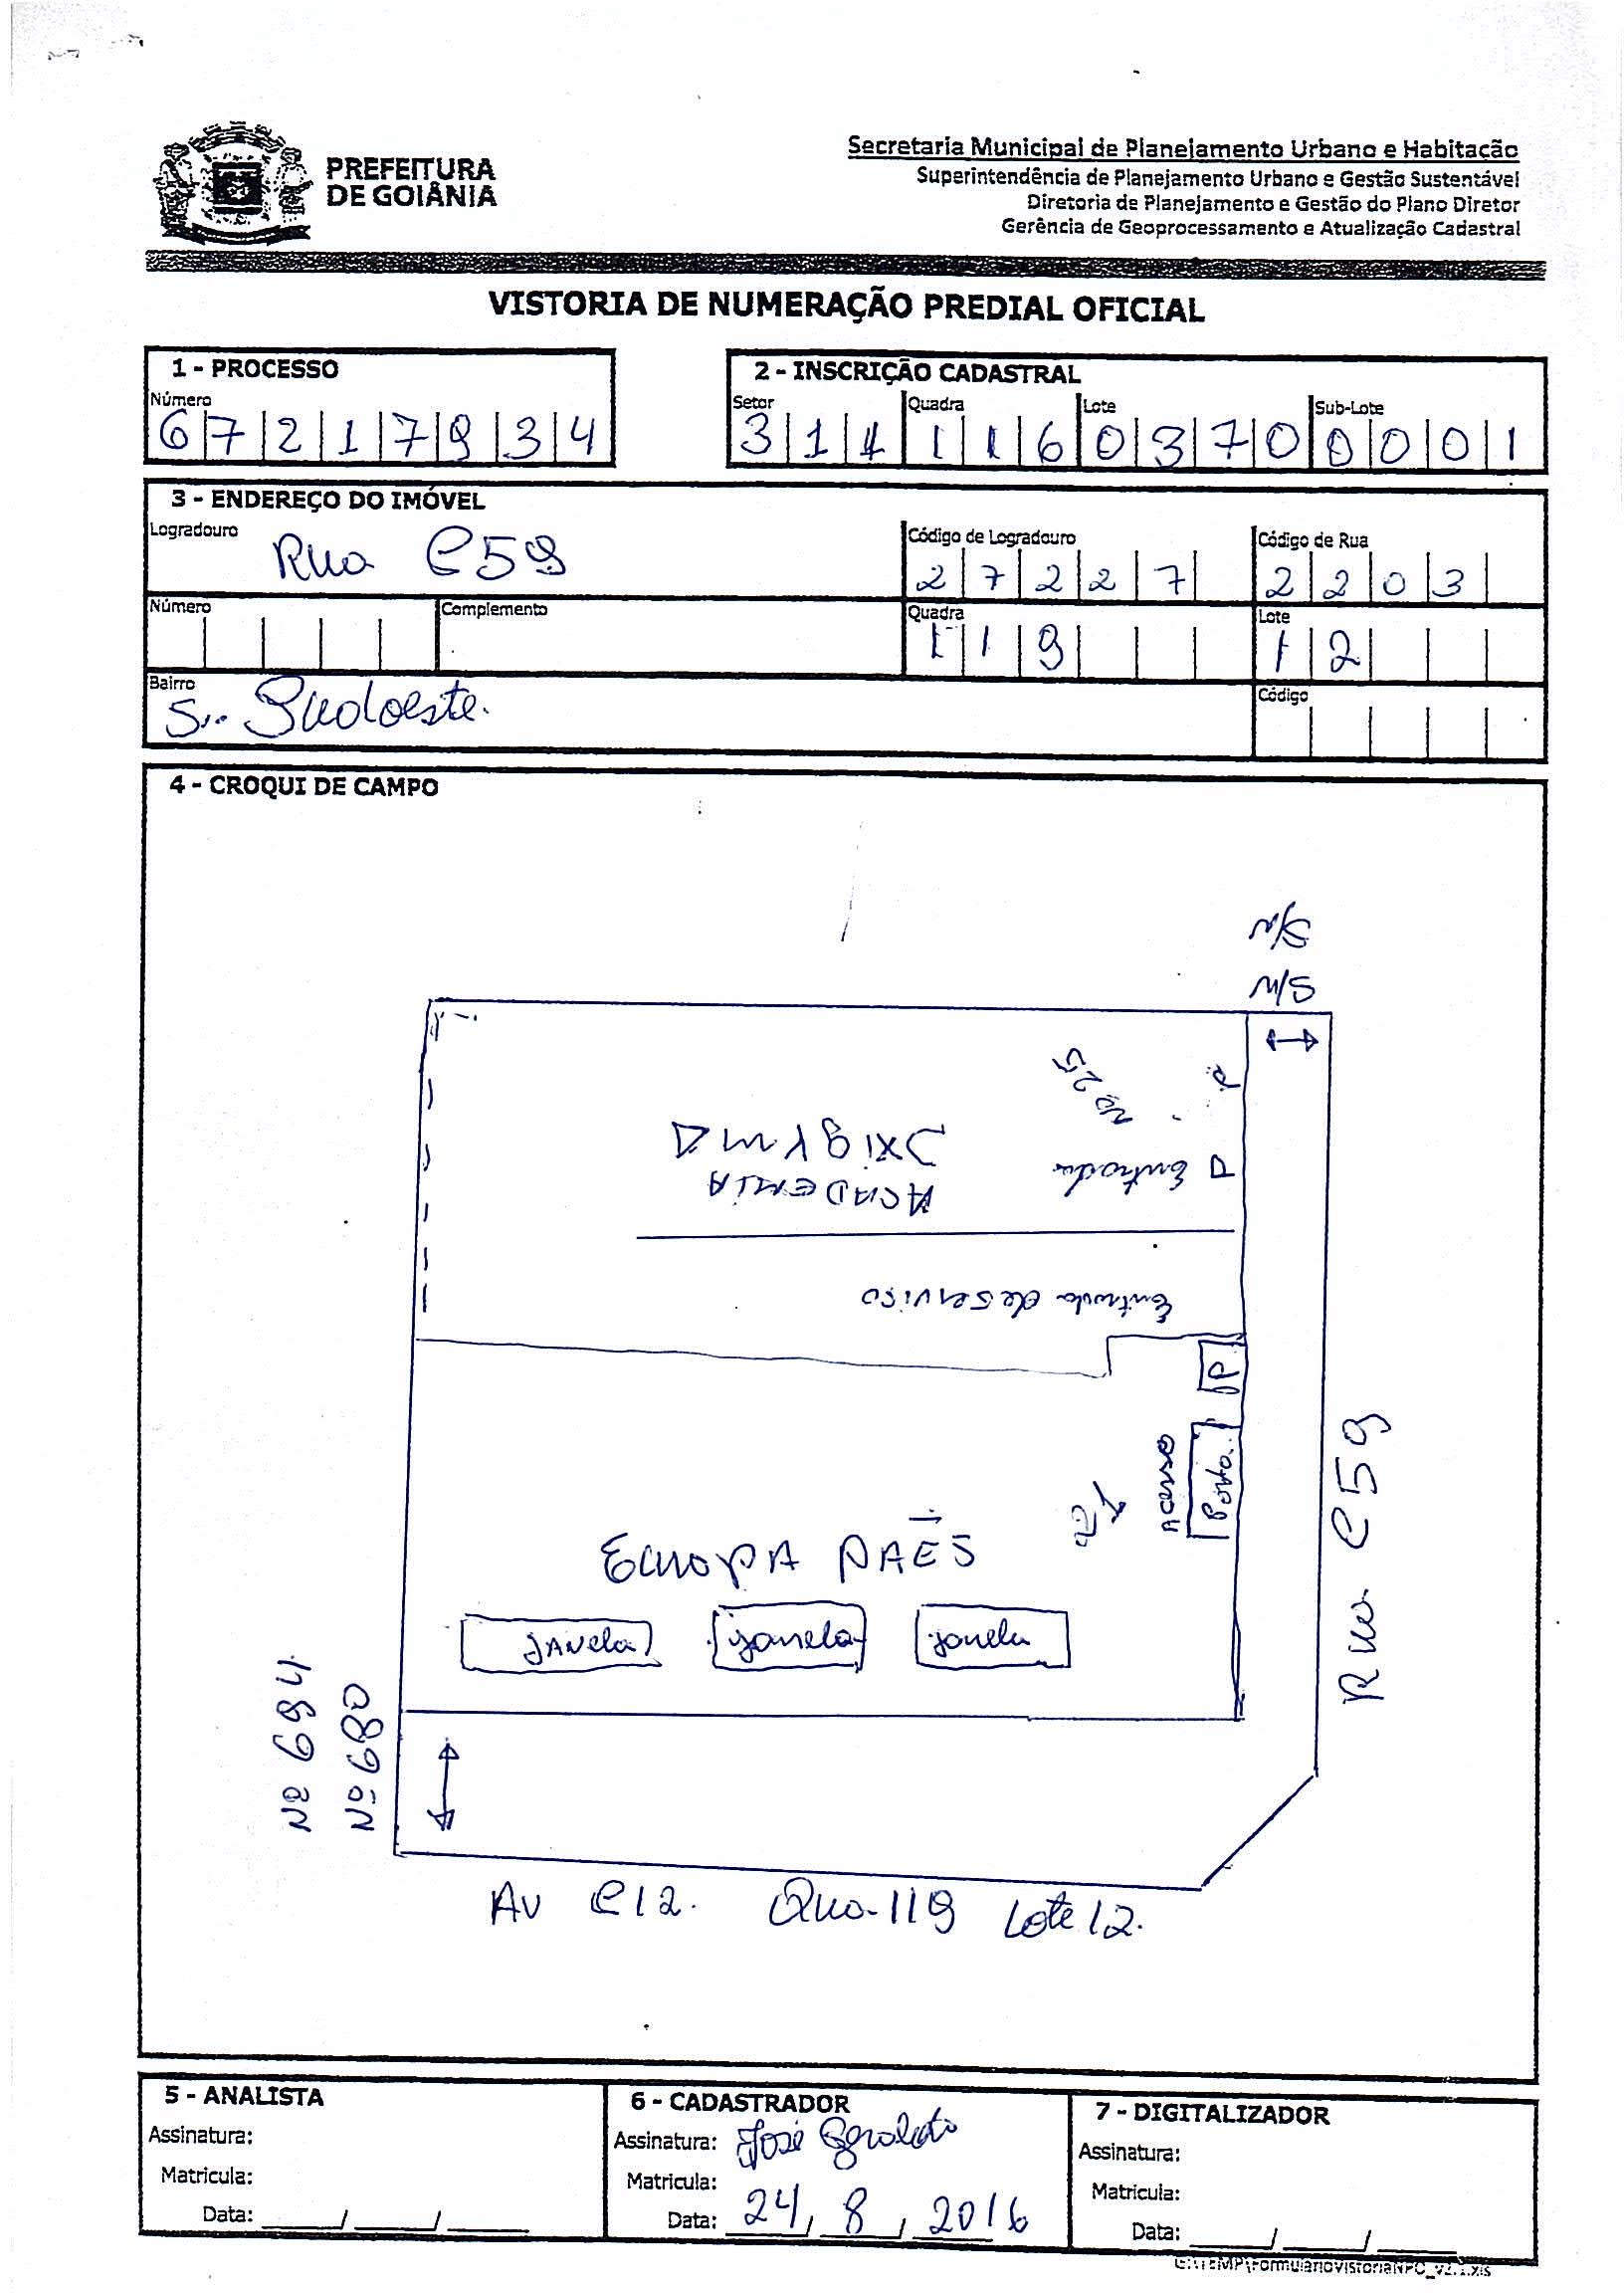 PREFEITURA
DE GOIÂNIA
Secretaria Municipal de Planejamento Urbano e Habitação
Superintendência de Planejamento Urbano e Gestão Sustentável
Diretoria de Planejamento e Gestão do Plano Diretor
Gerência de Geoprocessamento e Atualização Cadastral
VISTORIA DE NUMERAÇÃO PREDIAL OFICIAL
1 - PROCESSO
Número
6 7 2 1 7 9 3 4
2 - INSCRIÇÃO CADASTRAL
Setor Quadra Lote Sub-Lote
3 1 4 1 1 6 0 3 7 0 0 0 0 1
3 - ENDEREÇO DO IMÓVEL
Logradouro Rua C59
Código de Logradouro
2 7 2 2 7
Código de Rua
2 2 0 3
Número
Complemento
Quadra
1 1 9
Lote
1 2
Bairro
S. Sudoeste.
Código
4 - CROQUI DE CAMPO
S/N
S/N
Nº 25
P
ACADEMIA
Entrada
P
Entrada de Serviço
P
Acesso
Porta
EUROPA PAES
JANela
janela
janela
Rua C59
Nº 694
Nº 680
Av C12. Qua-119 Lote 12.
5 - ANALISTA
Assinatura:
Matricula:
Data: ____/____/____
6 - CADASTRADOR
Assinatura: José Geraldo
Matricula:
Data: 24/8/2016
7 - DIGITALIZADOR
Assinatura:
Matricula:
Data: ____/____/____
G:\TEMP\FormularioVistoriaNPO_v2.1.xls